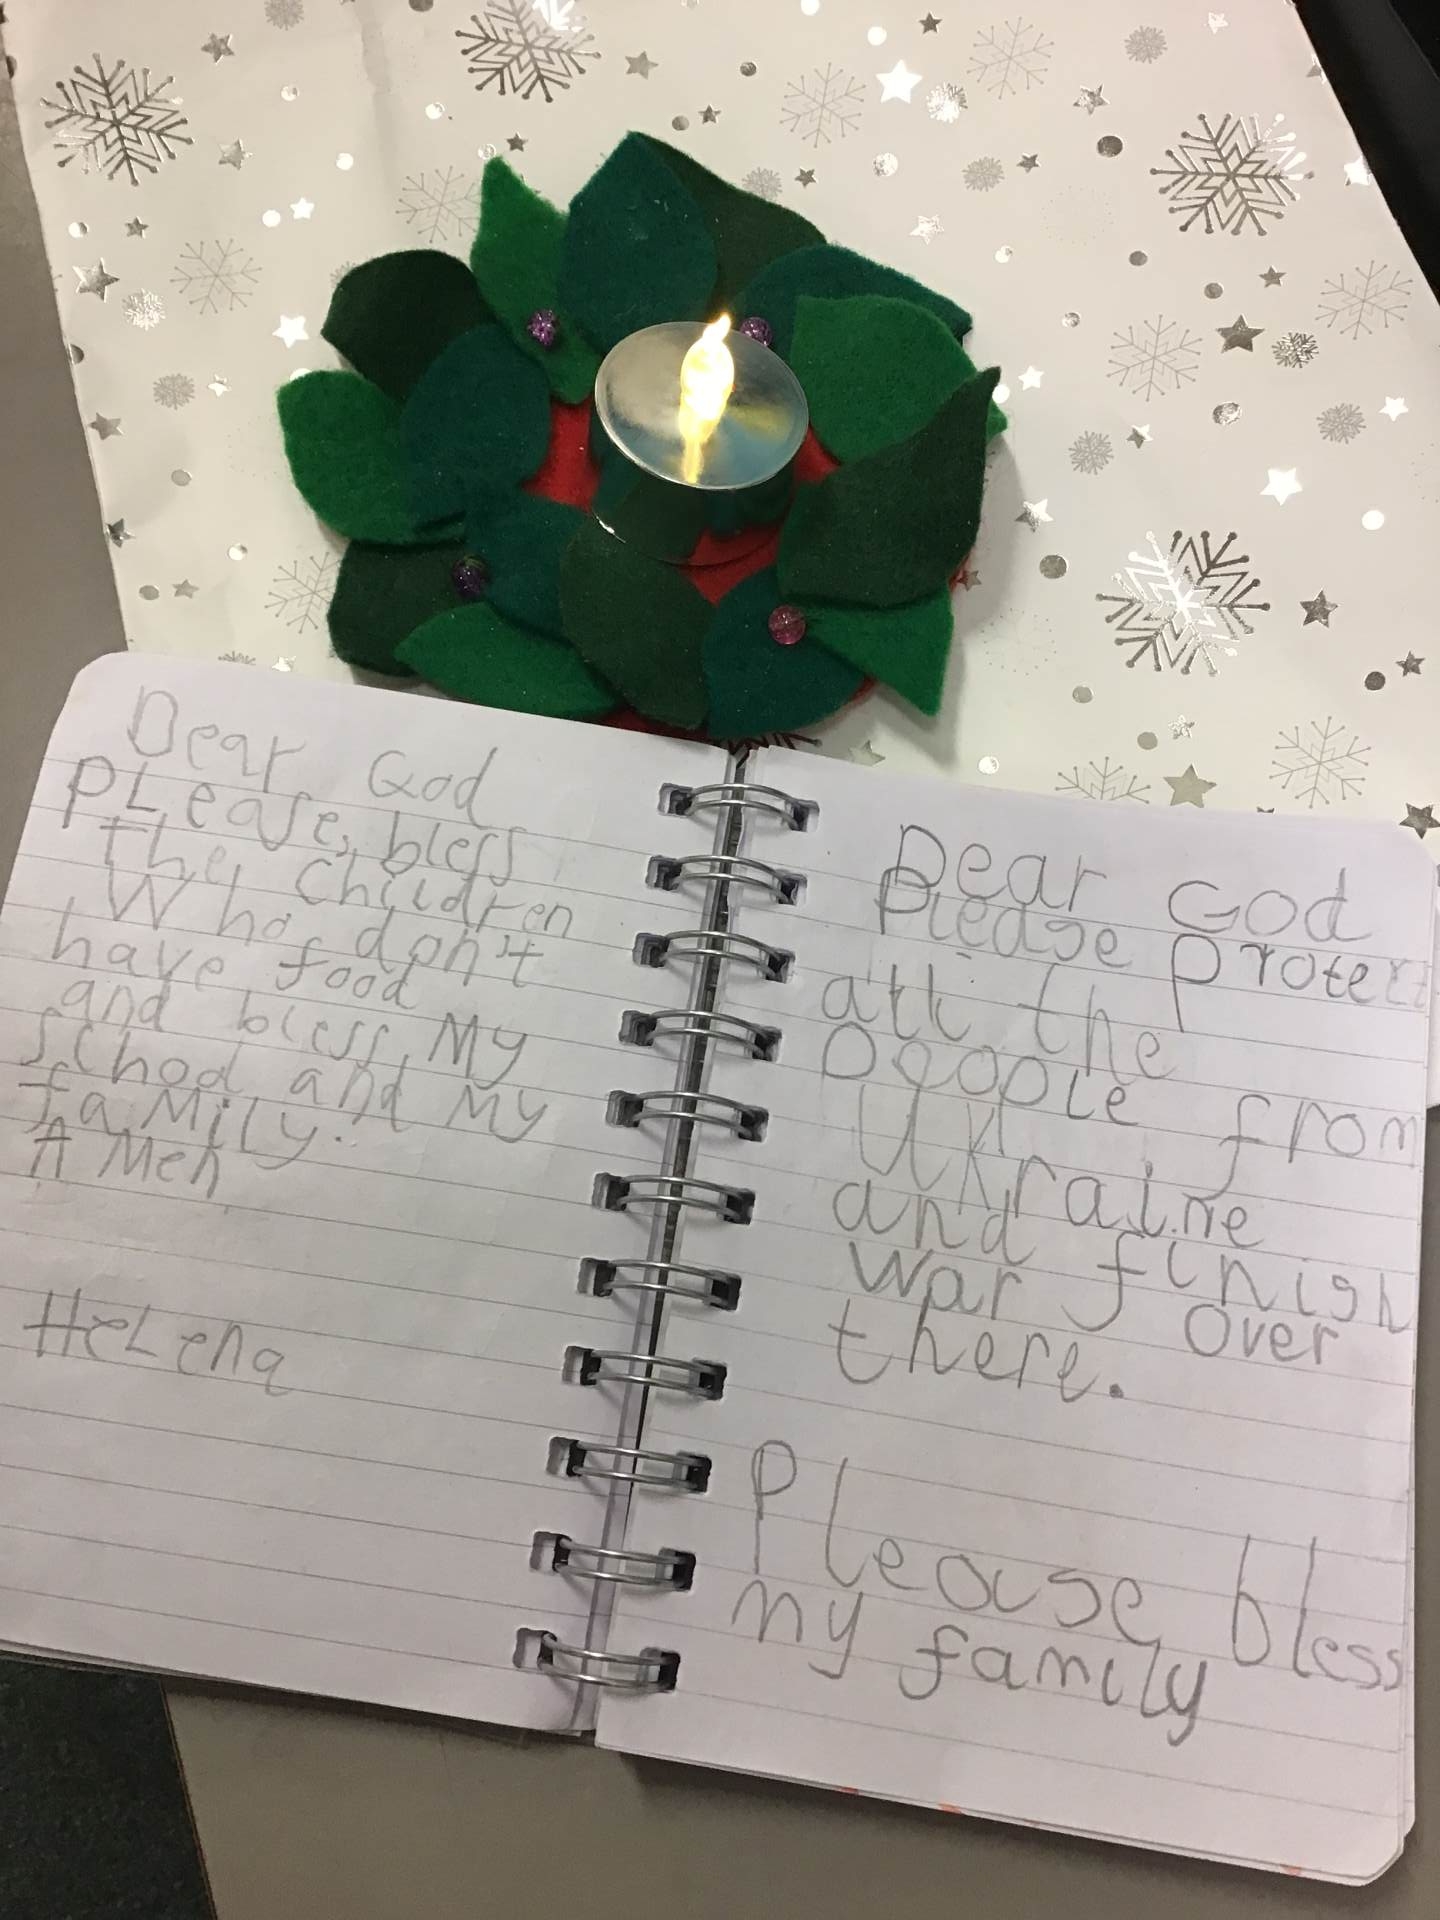 Dear God
PLease, bless
the Children
Who don't
have food
and bless My
School and My
faMily.
AMen
HeLena
Dear God
Please Protect
all the
People from
Ukraine
and finish
war over
there.
Please bless
my family